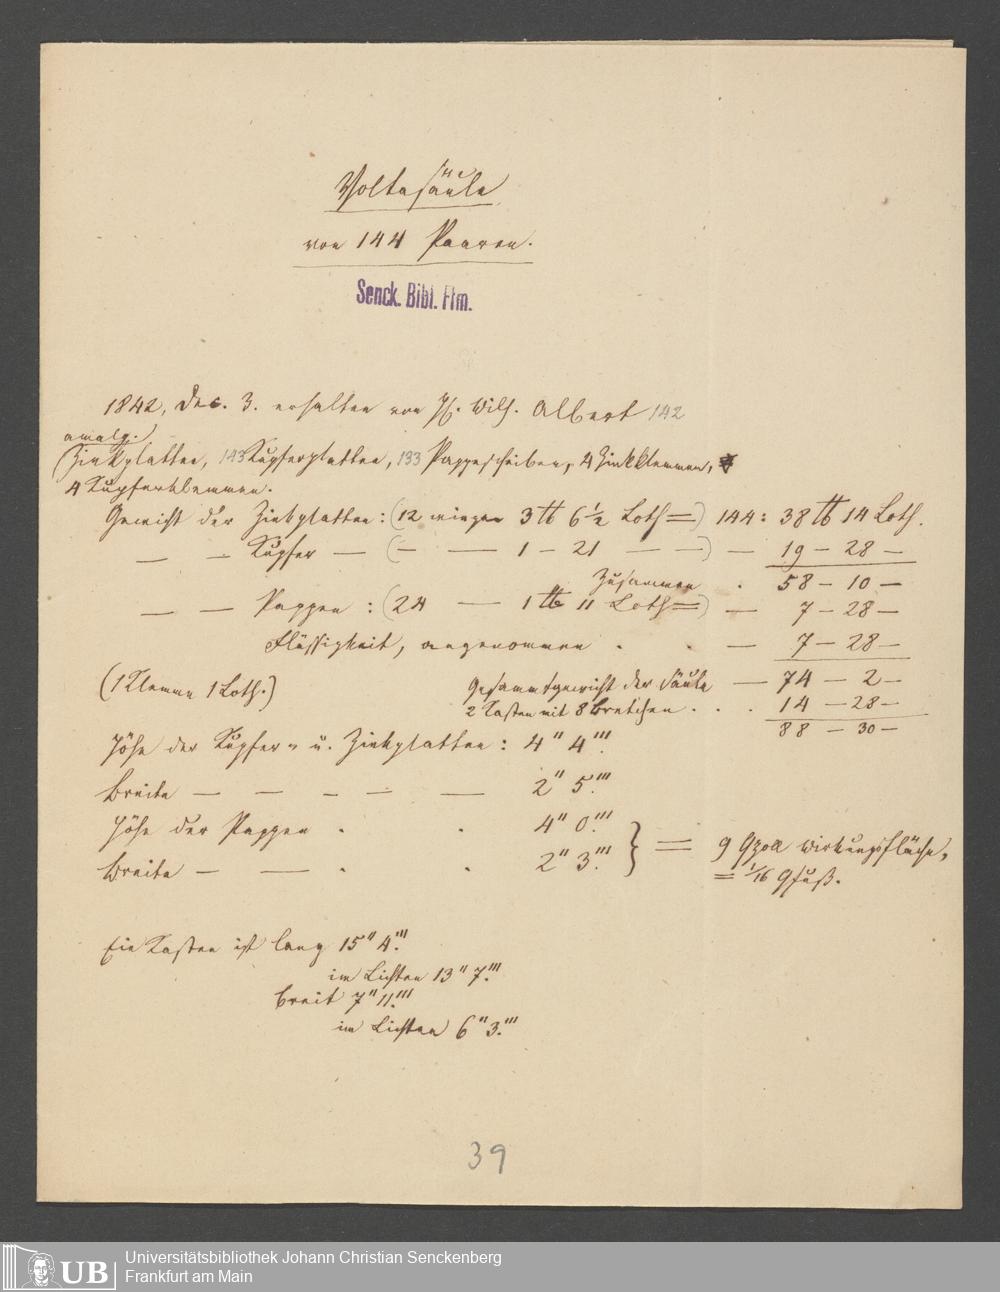 Voltasäule
von 144 Paaren.
Senck. Bibl. Ffm.
1842, Dec. 3. erhalten von H. Wilh. Albert 142
amalg.
Zinkplatten, 143 Kupferplatten, 133 Pappescheiben, 4 Zinkklemmen,
4 Kupferklemmen.
Gewicht der Zinkplatten: (12 wiegen 3 ℔ 6½ Loth =) 144: 38 ℔ 14 Loth.
— — Kupfer — (— — 1 — 21 — —) — 19 — 28 —
Zusammen . 58 — 10 —
— — Pappen : (24 — 1 ℔ 11 Loth =) — 7 — 28 —
Flüssigkeit, angenommen . . — 7 — 28 —
(1 Klemme 1 Loth.) Gesammtgewicht der Säule — 74 — 2 —
2 Kasten mit 8 Bretchen . . . 14 — 28 —
88 — 30 —
Höhe der Kupfer- u. Zinkplatten : 4" 4'''.
Breite — — — — — 2" 5.'''
Höhe der Pappen . . 4" 0.'''
Breite — — . . 2" 3.''' } = 9 Qzoll Wirkungsfläche,
= 1/16 Qfuß.
Ein Kasten ist lang 15" 4.'''
im Lichten 13" 7.'''
breit 7" 11.'''
im Lichten 6" 3.'''
39
UB
Universitätsbibliothek Johann Christian Senckenberg
Frankfurt am Main